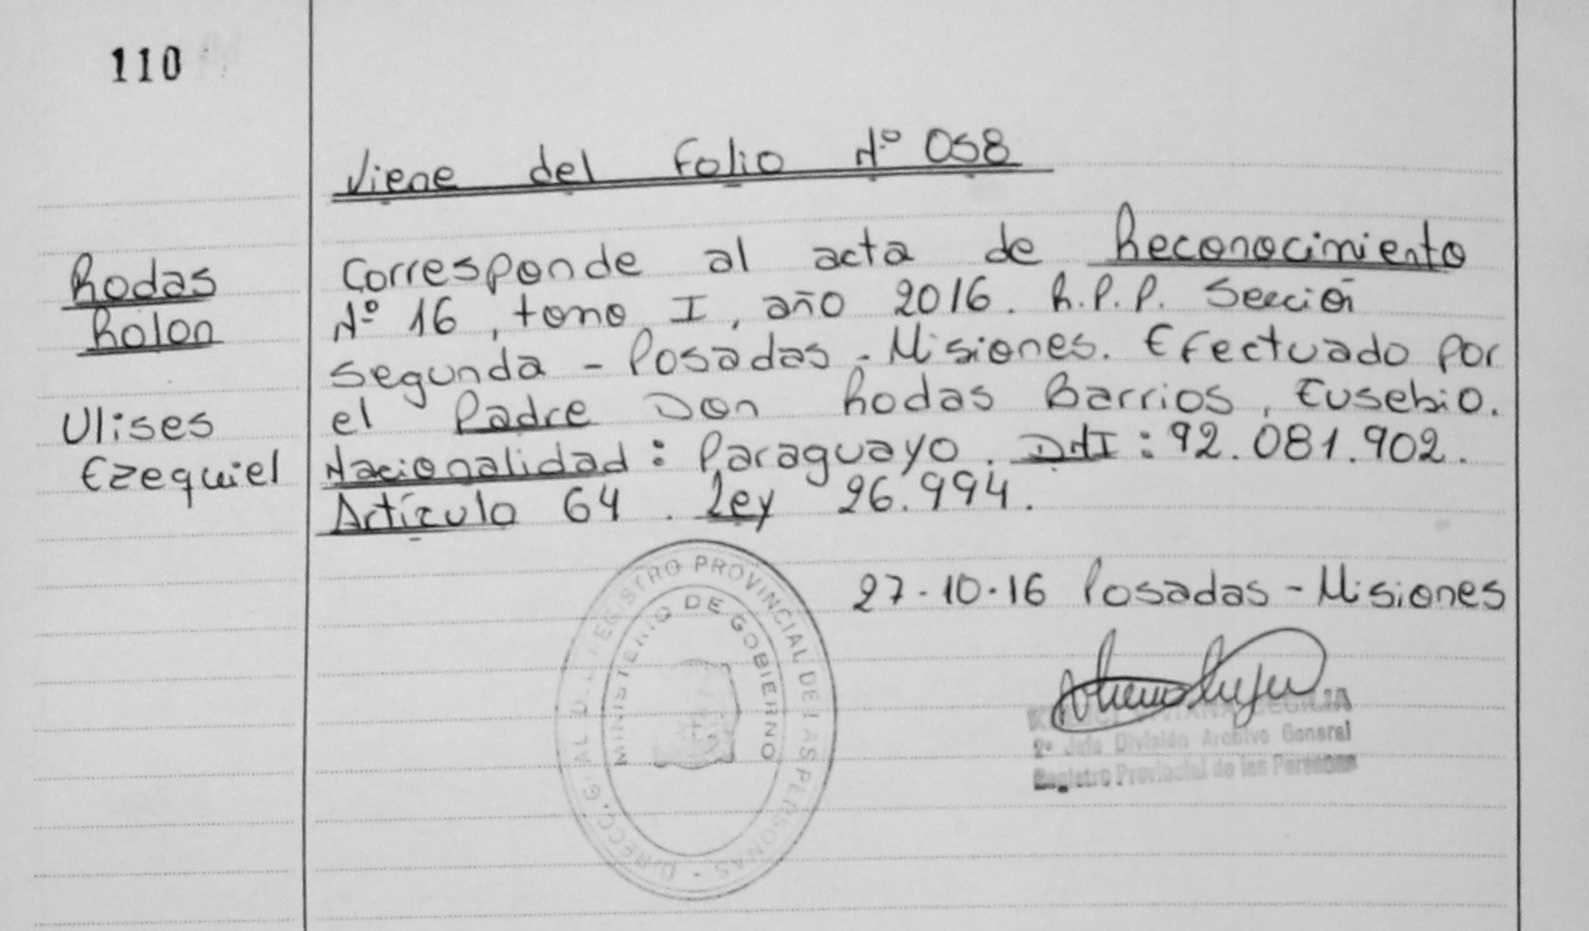 110
Viene del Folio Nº 058
Rodas
Rolon
Ulises
Ezequiel
Corresponde al acta de Reconocimiento
Nº 16, tomo I, año 2016. R.P.P. Sección
Segunda - Posadas - Misiones. Efectuado por
el Padre Don Rodas Barrios, Eusebio.
Nacionalidad: Paraguayo. DNI: 92.081.902.
Artículo 64. Ley 26.994.
27-10-16 Posadas - Misiones
REGISTRO PROVINCIAL DE LAS PERSONAS
MINISTERIO DE GOBIERNO
CECILIA
2º Jefa División Archivo General
Registro Provincial de las Personas